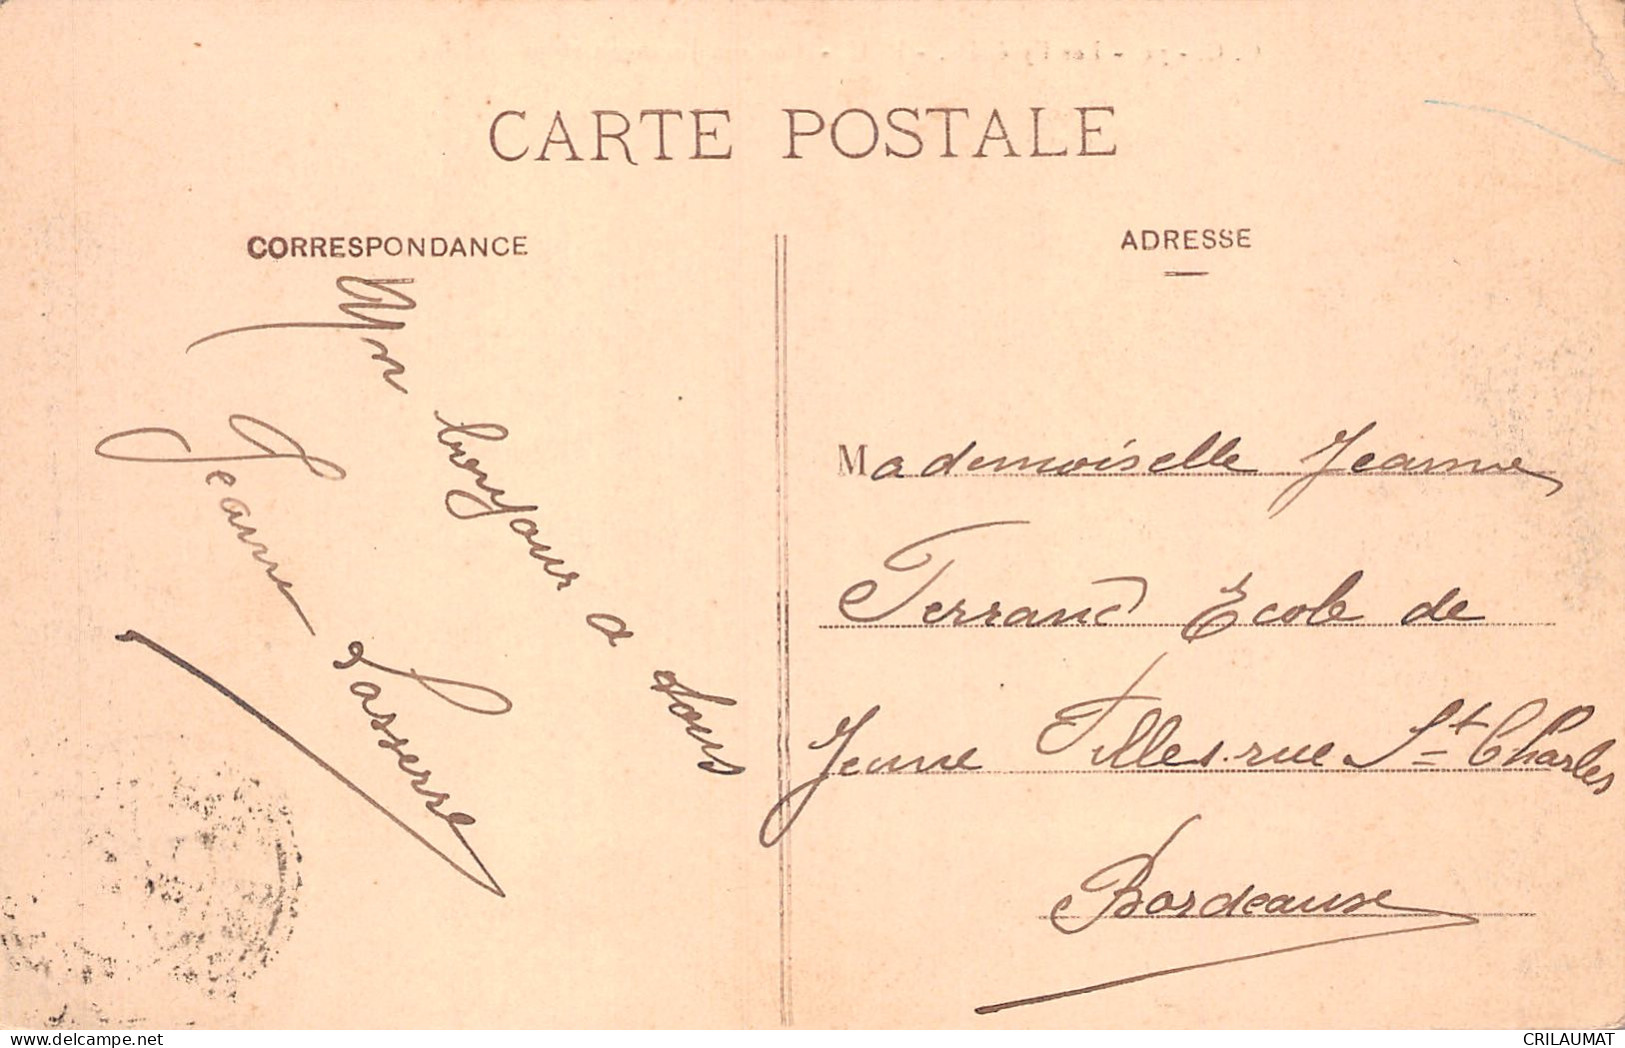 CARTE POSTALE
CORRESPONDANCE
ADRESSE
Un
bonjour a
tous
Jeanne
Lasserre
Mademoiselle Jeanne
Ferrand Ecole de
Jeune Filles. rue St Charles
Bordeaux
delcampe.net
CRILAUMAT